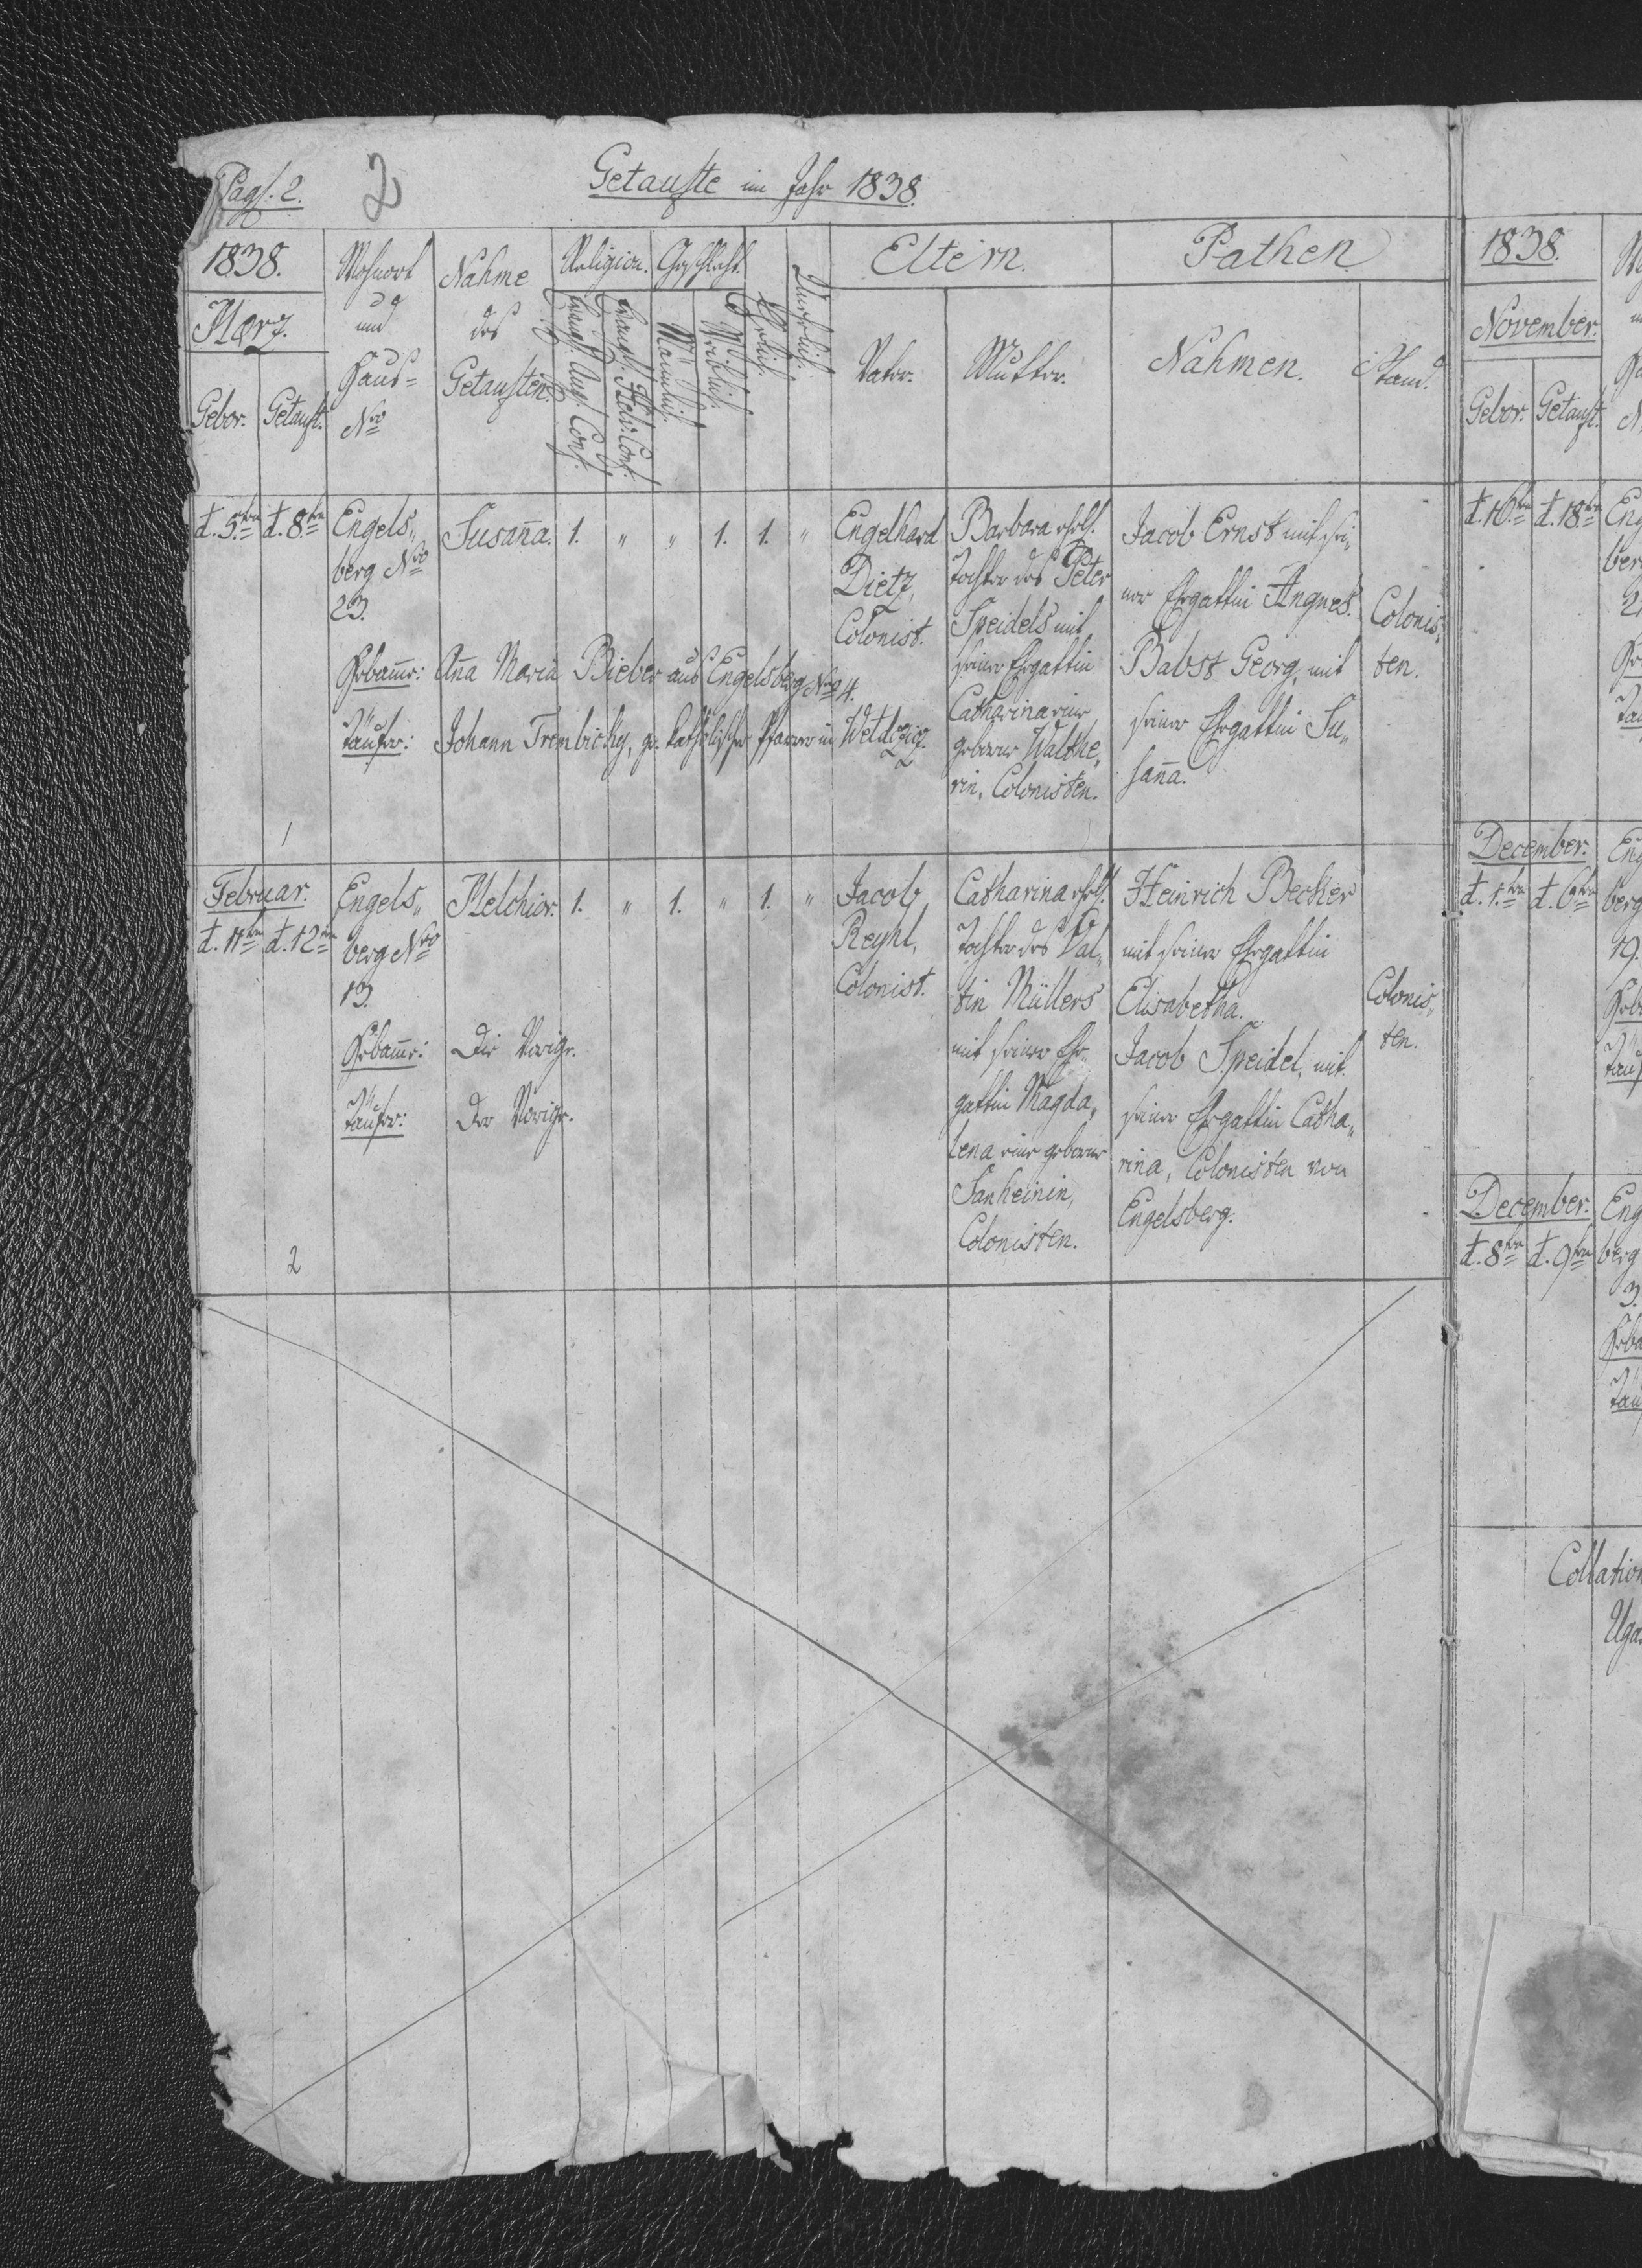 Pag. 2.
2
Getaufte im Jahr 1838.
1838.
März.
Gebor. Getauft.
Wohnort
und
Haus=
Nro
Nahme
des
Getauften.
Religion.
Evangl. Aug. Conf.
Evangl. Helv. Conf.
Geschlecht.
Männlich.
Weiblich.
Ehelich.
Unehelich.
Eltern.
Vater.
Mutter.
Pathen
Nahmen.
Stand.
d. 5ten d. 8ten
Engels„
berg Nro
23.
Susana.
1. " " 1. 1. "
Engelhard
Dietz,
Colonist.
Barbara ehel.
Tochter des Peter
Speidels mit
seiner Ehgattin
Catharina eine
geborne Walthe„
rin, Colonisten.
Jacob Ernst mit sei„
ner Ehgattin Angnes.
Babst Georg, mit
seiner Ehgattin Su„
sana.
Colonis„
ten.
Hebame: Ana Maria Bieber aus Engelsberg Nro 24.
Täufer: Johann Trembicky, gr. katholischer Pfarrer in Weldzicz.
1
Februar.
d. 11ten d. 12ten
Engels„
berg Nro
13.
Melchior.
1. " 1. " 1. "
Jacob
Reyhl,
Colonist.
Catharina ehel.
Tochter des Val„
tin Müllers
mit seiner Eh„
gattin Magda„
lena eine geborne
Sanheinin,
Colonisten.
Heinrich Becker
mit seiner Ehgattin
Elisabetha.
Jacob Speidel, mit
seiner Ehgattin Catha„
rina, Colonisten von
Engelsberg.
Colonis„
ten.
Hebame: Die Vorige.
Täufer: Der Vorige.
2
1838.
November.
Gebor. Getauft.
d. 16ten d. 18ten
Eng
ber
December.
d. 1ten d. 6ten
Eng
berg
19.
December.
d. 8ten d. 9ten
Eng
berg
3.
Heba
Tau
Collation
Uga